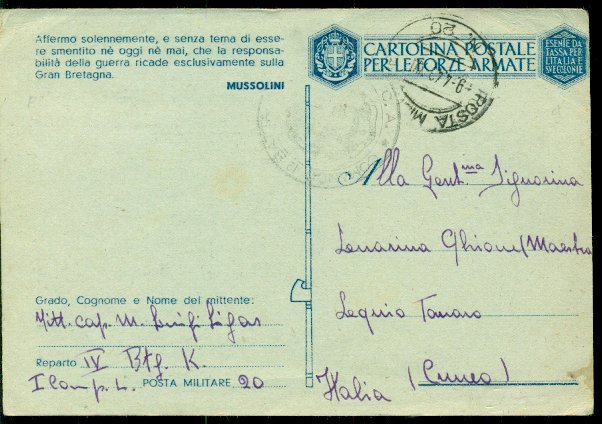 Affermo solennemente, e senza tema di esse-
re smentito nè oggi nè mai, che la responsa-
bilità della guerra ricade esclusivamente sulla
Gran Bretagna.
MUSSOLINI
CARTOLINA POSTALE
PER LE FORZE ARMATE
ESENTE DA
TASSA PER
L'ITALIA E
SVE COLONIE
POSTA MI
20
Alla Gent.ma Signorina
Ghione (Maestra
Lequio Tanaro
(Cuneo)
Italia
Grado, Cognome e Nome del mittente:
cap. M. Luigi
Reparto IV Btg. K.
I Comp. L. POSTA MILITARE 20